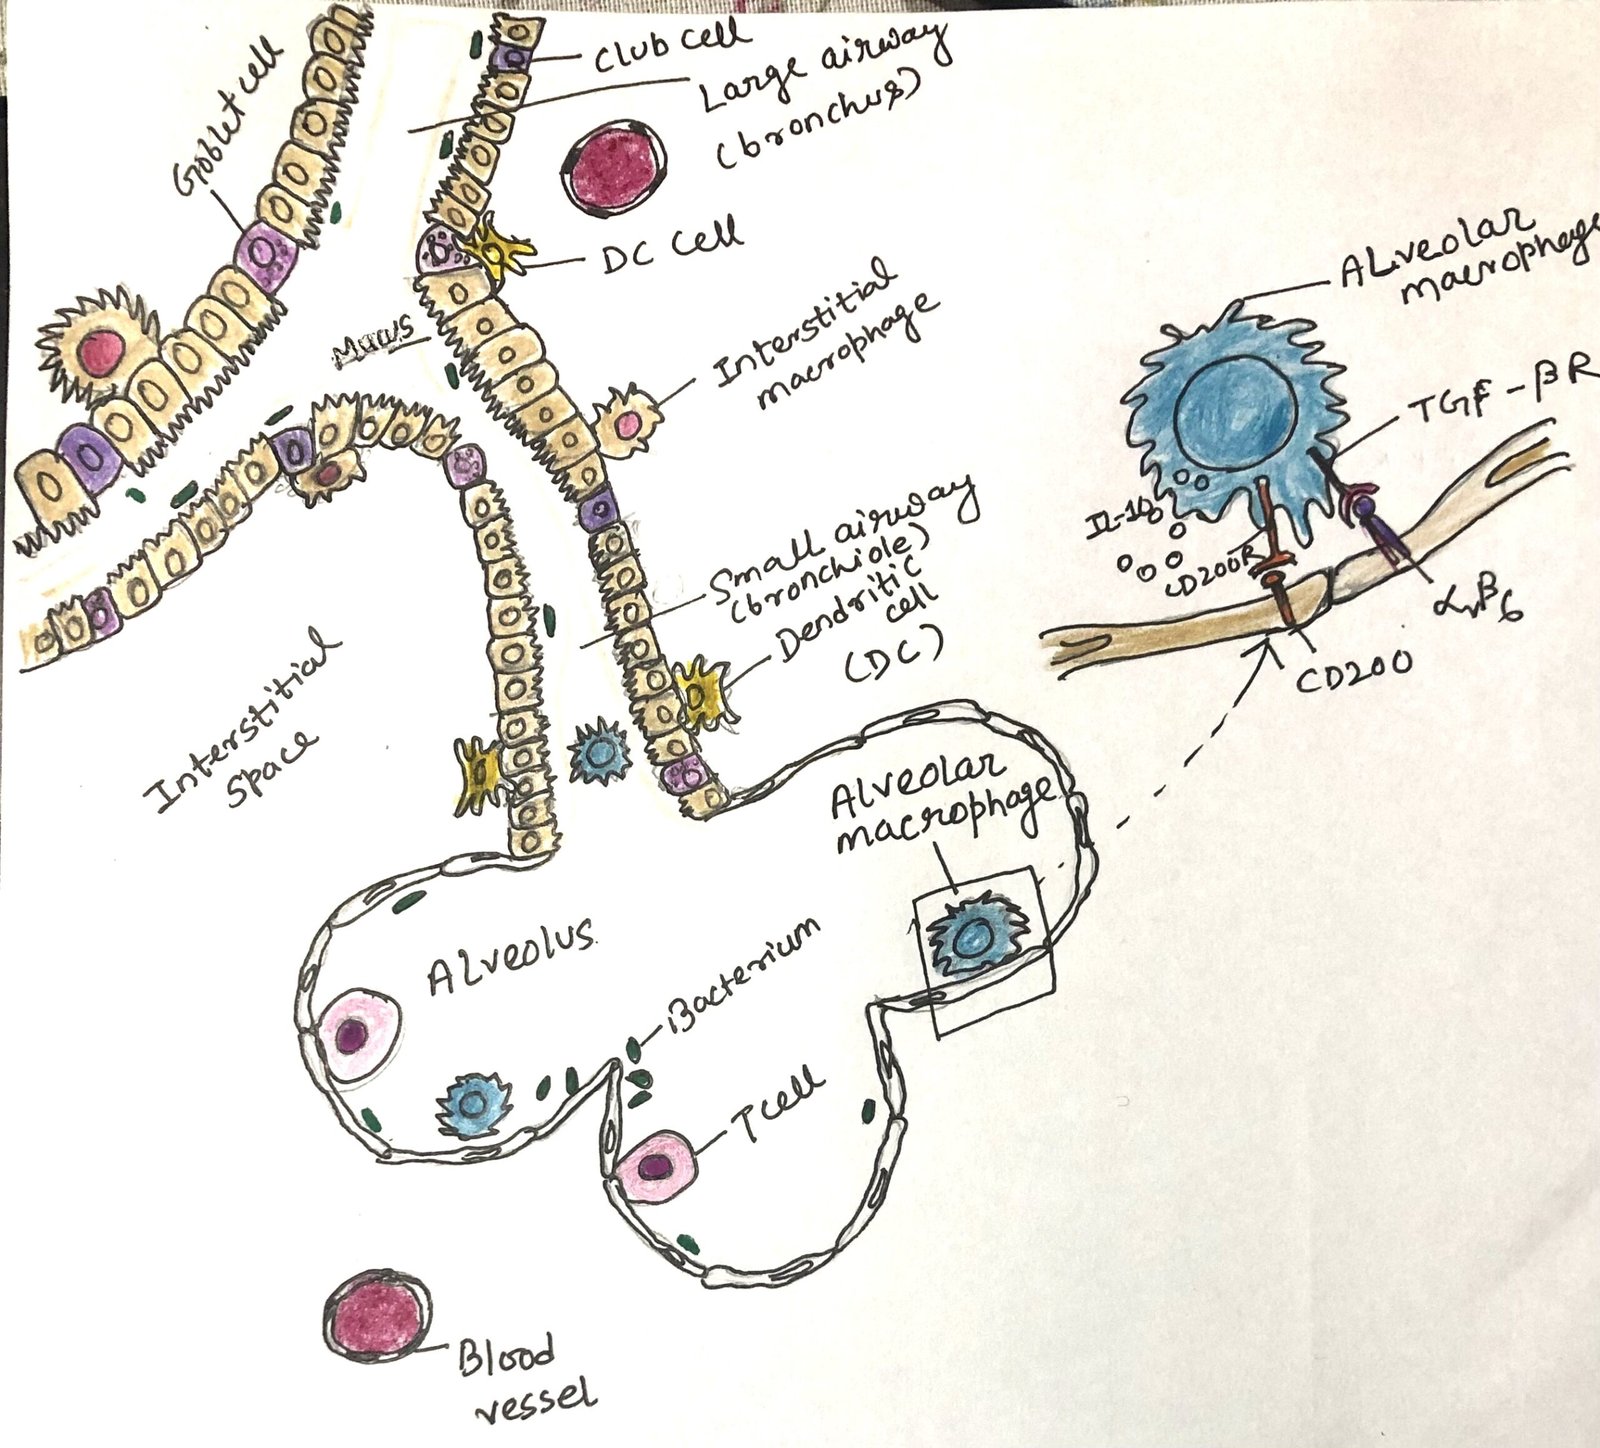 Goblet cell
Club cell
Large airway
(bronchus)
DC cell
Mucus
Interstitial
macrophage
Small airway
(bronchiole)
Dendritic
cell
(DC)
Interstitial
Space
Alveolar
macrophage
TGF-βR
IL-10
CD200R
αvβ6
CD200
Alveolar
macrophage
Alveolus
Bacterium
T cell
Blood
vessel